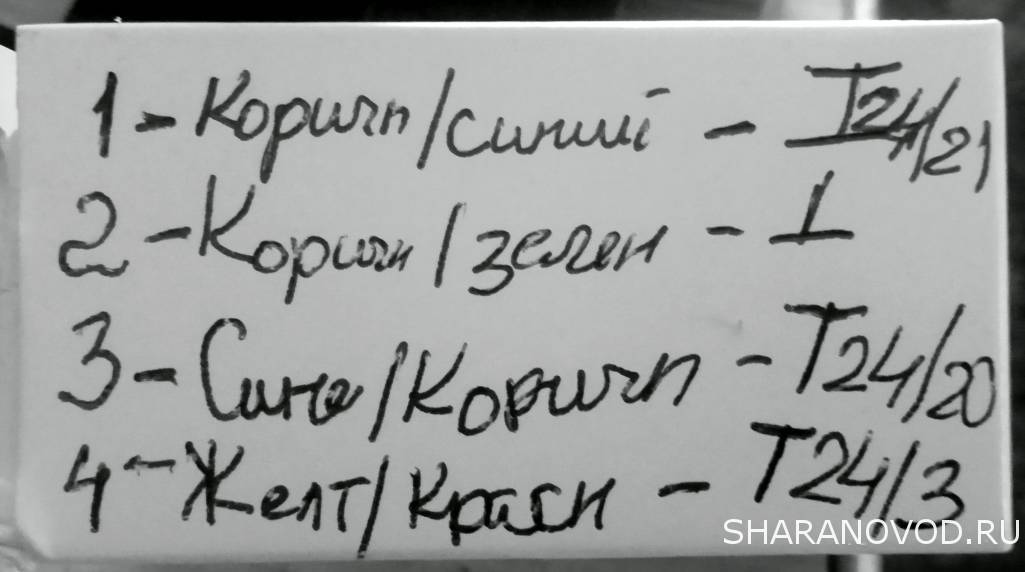 1 - Коричн/синий - T24/21
2 - Коричн/зелен - ⊥
3 - Сине/Коричн - T24/20
4 - Желт/Красн - T24/3
SHARANOVOD.RU